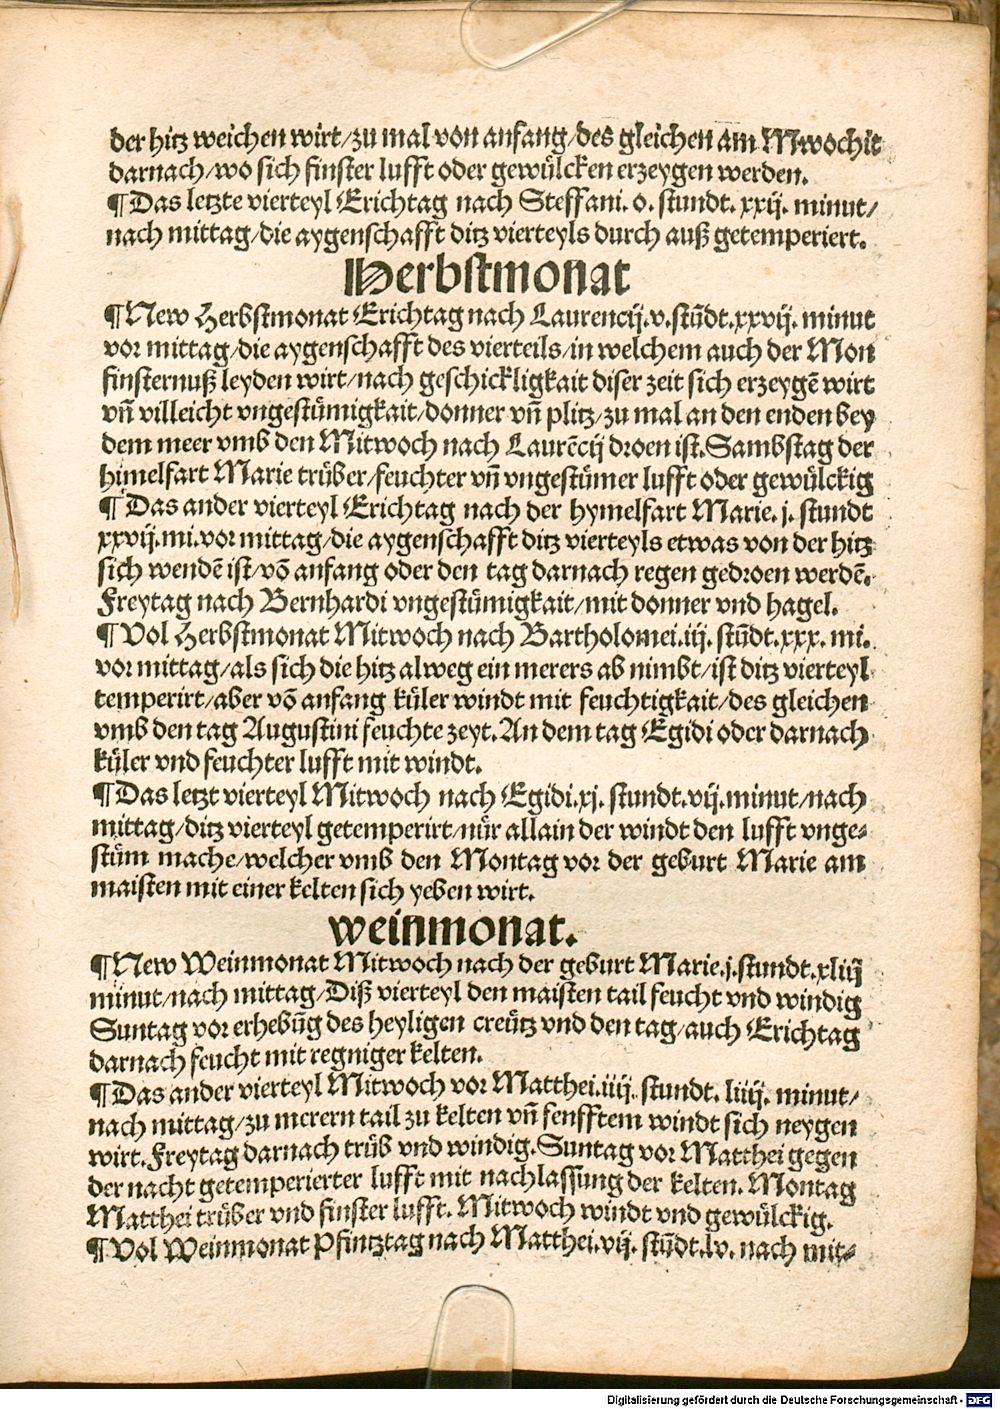 der hitz weichen wirt/zu mal von anfang/des gleichen am Mwochit
darnach/wo sich finster lufft oder gewülcken erzeygen werden.
¶Das letzte vierteyl Erichtag nach Steffani. o. stundt. xxij. minut/
nach mittag/die aygenschafft ditz vierteyls durch auß getemperiert.
Herbstmonat
¶New Herbstmonat Erichtag nach Laurencij. v. stūdt. xxvij. minut
vor mittag/die aygenschafft des vierteils/in welchem auch der Mon
finsternuß leyden wirt/nach geschickligkait diser zeit sich erzeygē wirt
vñ villeicht vngestümigkait/donner vñ plitz/zu mal an den enden bey
dem meer vmb den Mitwoch nach Laurēcij droen ist. Sambstag der
himelfart Marie trüber/feuchter vñ vngestümer lufft oder gewülckig
¶Das ander vierteyl Erichtag nach der hymelfart Marie. j. stundt
xxvij. mi. vor mittag/die aygenschafft ditz vierteyls etwas von der hitz
sich wendē ist/vō anfang oder den tag darnach regen gedroen werdē.
Freytag nach Bernhardi vngestümigkait/mit donner vnd hagel.
¶Vol Herbstmonat Mitwoch nach Bartholomei. iij. stūdt. xxx. mi.
vor mittag/als sich die hitz alweg ein merers ab nimbt/ist ditz vierteyl
temperirt/aber vō anfang küler windt mit feuchtigkait/des gleichen
vmb den tag Augustini feuchte zeyt. An dem tag Egidi oder darnach
küler vnd feuchter lufft mit windt.
¶Das letzt vierteyl Mitwoch nach Egidi. xj. stundt. vij. minut/nach
mittag/ditz vierteyl getemperirt/nür allain der windt den lufft vnge-
stüm mache/welcher vmb den Montag vor der geburt Marie am
maisten mit einer kelten sich yeben wirt.
weinmonat.
¶New Weinmonat Mitwoch nach der geburt Marie. j. stundt. xliij
minut/nach mittag/Diß vierteyl den maisten tail feucht vnd windig
Suntag vor erhebūg des heyligen creütz vnd den tag/auch Erichtag
darnach feucht mit regniger kelten.
¶Das ander vierteyl Mitwoch vor Matthei. iiij. stundt. liiij. minut/
nach mittag/zu merern tail zu kelten vñ senfftem windt sich neygen
wirt. Freytag darnach trüb vnd windig. Suntag vor Matthei gegen
der nacht getemperierter lufft mit nachlassung der kelten. Montag
Matthei trüber vnd finster lufft. Mitwoch windt vnd gewülckig.
¶Vol Weinmonat Pfintztag nach Matthei. vij. stūdt. lv. nach mit-
Digitalisierung gefördert durch die Deutsche Forschungsgemeinschaft - DFG